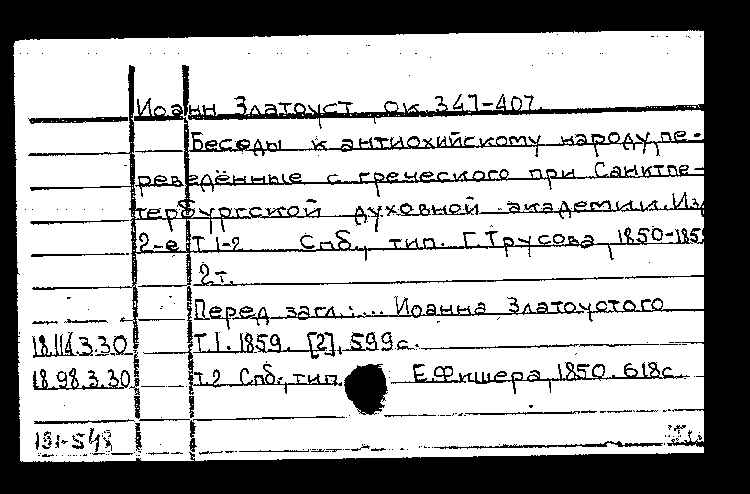 Иоанн Златоуст, ок. 347-407.
Беседы к антиохийскому народу, пе-
реведённые с греческого при Санктпе-
тербургской духовной академии. Из
2-е Т. 1-2 Спб., тип. Г. Трусова, 1850-185
2 т.
Перед загл.: ... Иоанна Златоустого
18.114.3.30 Т. 1. 1859. [2], 599 с.
18.98.3.30 т. 2 Спб., тип. Е. Фишера, 1850. 618 с.
191-548